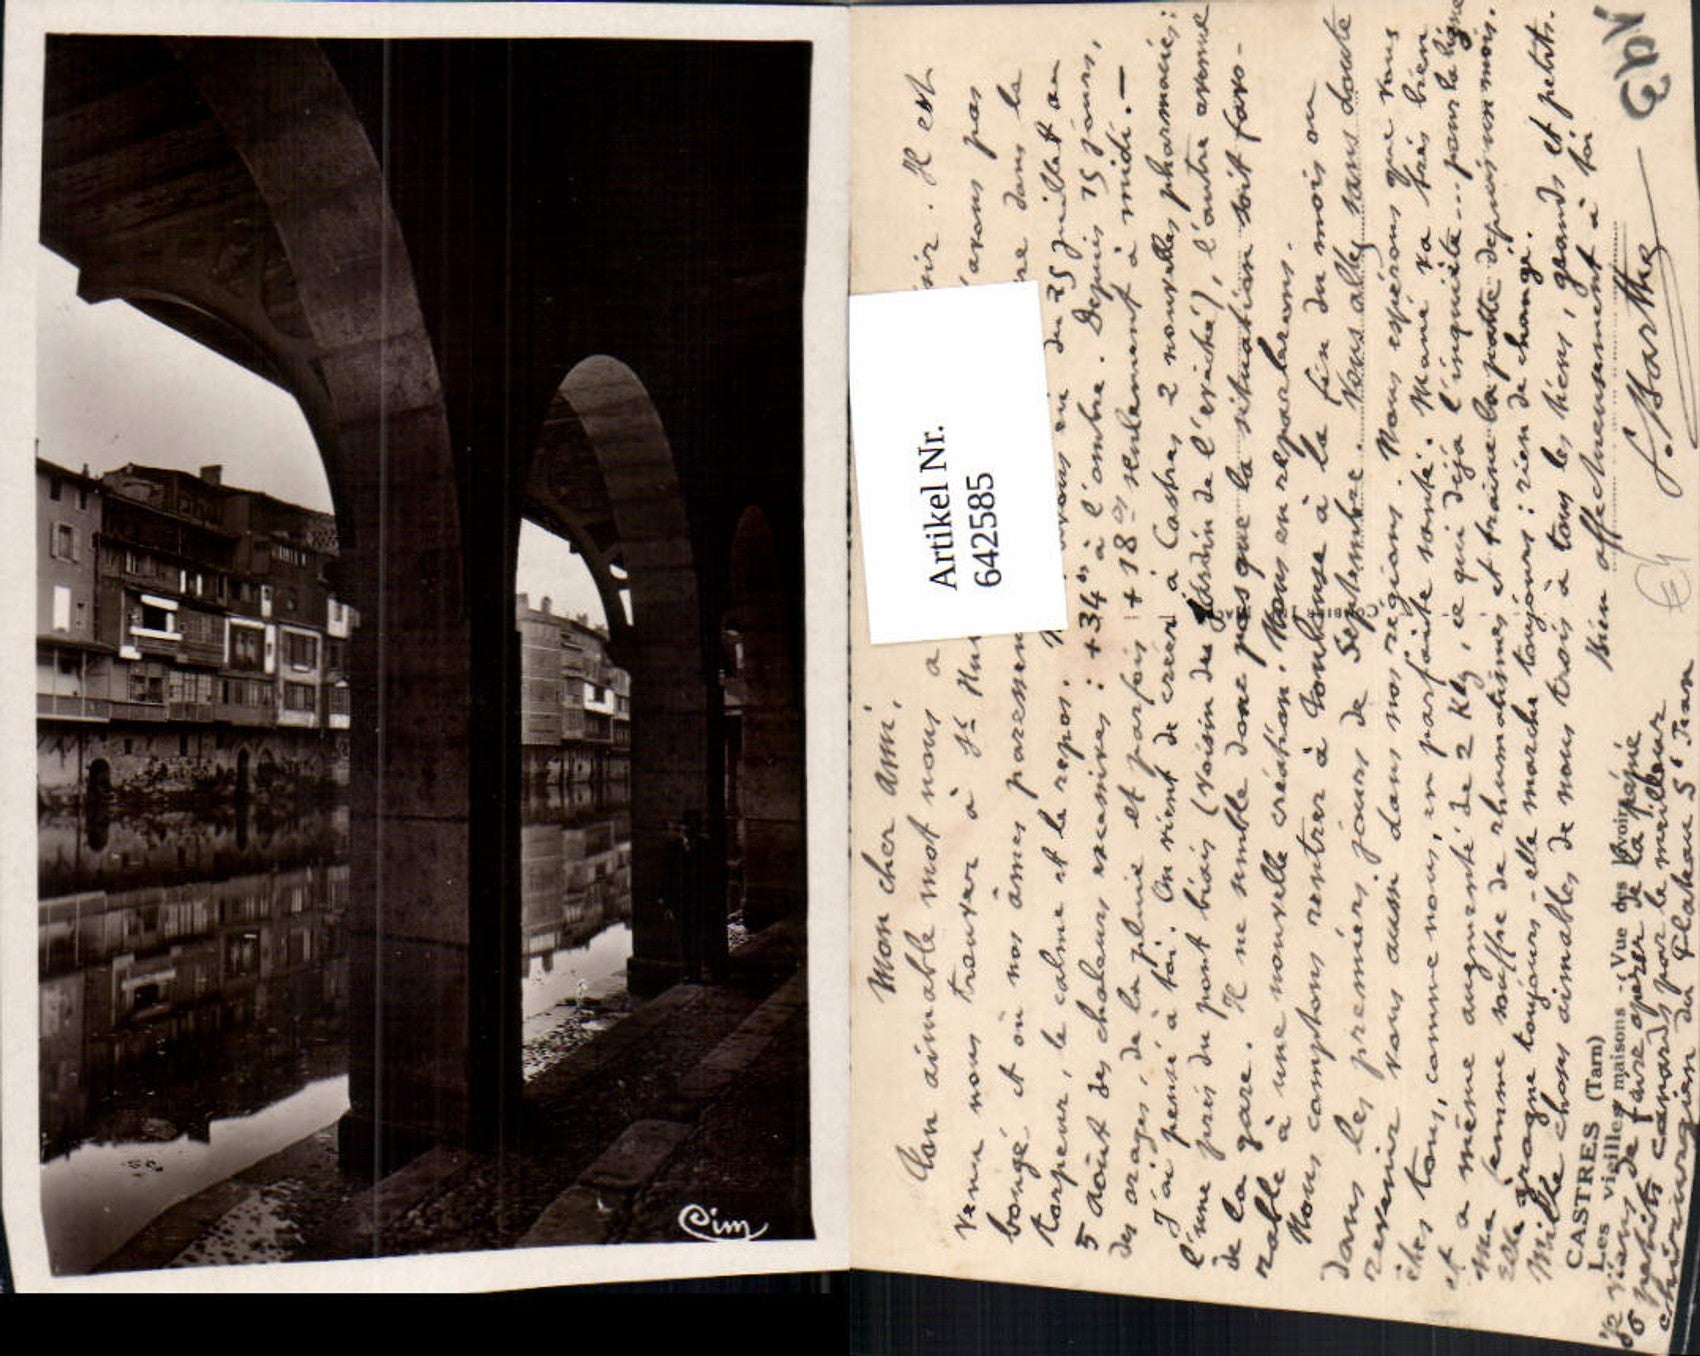 Cim
Artikel Nr.
642585
Mon cher ami,
Ton aimable mot nous a . Il est
venu nous trouver à St avons pas
bougé et où nos âmes dans la
torpeur, le calme et le repos. du 25 juillet au
5 août des chaleurs excessives : +34° à l'ombre. Depuis 15 jours,
des orages, de la pluie et parfois +18° seulement à midi. —
J'ai pensé à toi. On vient de créer à Castres 2 nouvelles pharmacies :
l'une près du pont biais (voisin du Jardin de l'evêché), l'autre avenue
de la gare. Il ne semble donc pas que la situation soit favo-
rable à une nouvelle création. Nous en reparlerons.
Nous comptons rentrer à Toulouse à la fin du mois ou
dans les premiers jours de Septembre. Vous allez sans doute
revenir vous aussi dans nos régions. Nous espérons que vous
êtes tous, comme nous, en parfaite santé. Mamé va très bien
et a même augmenté de 2 Klg, ce qui déjà l'inquiète... pour la ligne
Ma femme souffre de rhumatismes et traîne la patte depuis un mois.
Elle grogne toujours - elle marche toujours : rien de changé.
Mille choses aimables de nous trois à tous les tiens, grands et petits.
Bien affectueusement à toi
J. Barthe
CASTRES (Tarn)
Les vieilles maisons - Vue des
Viens de faire opérer de la pépie
6 petits canards par le meilleur
chirurgien du Plateau St Jean